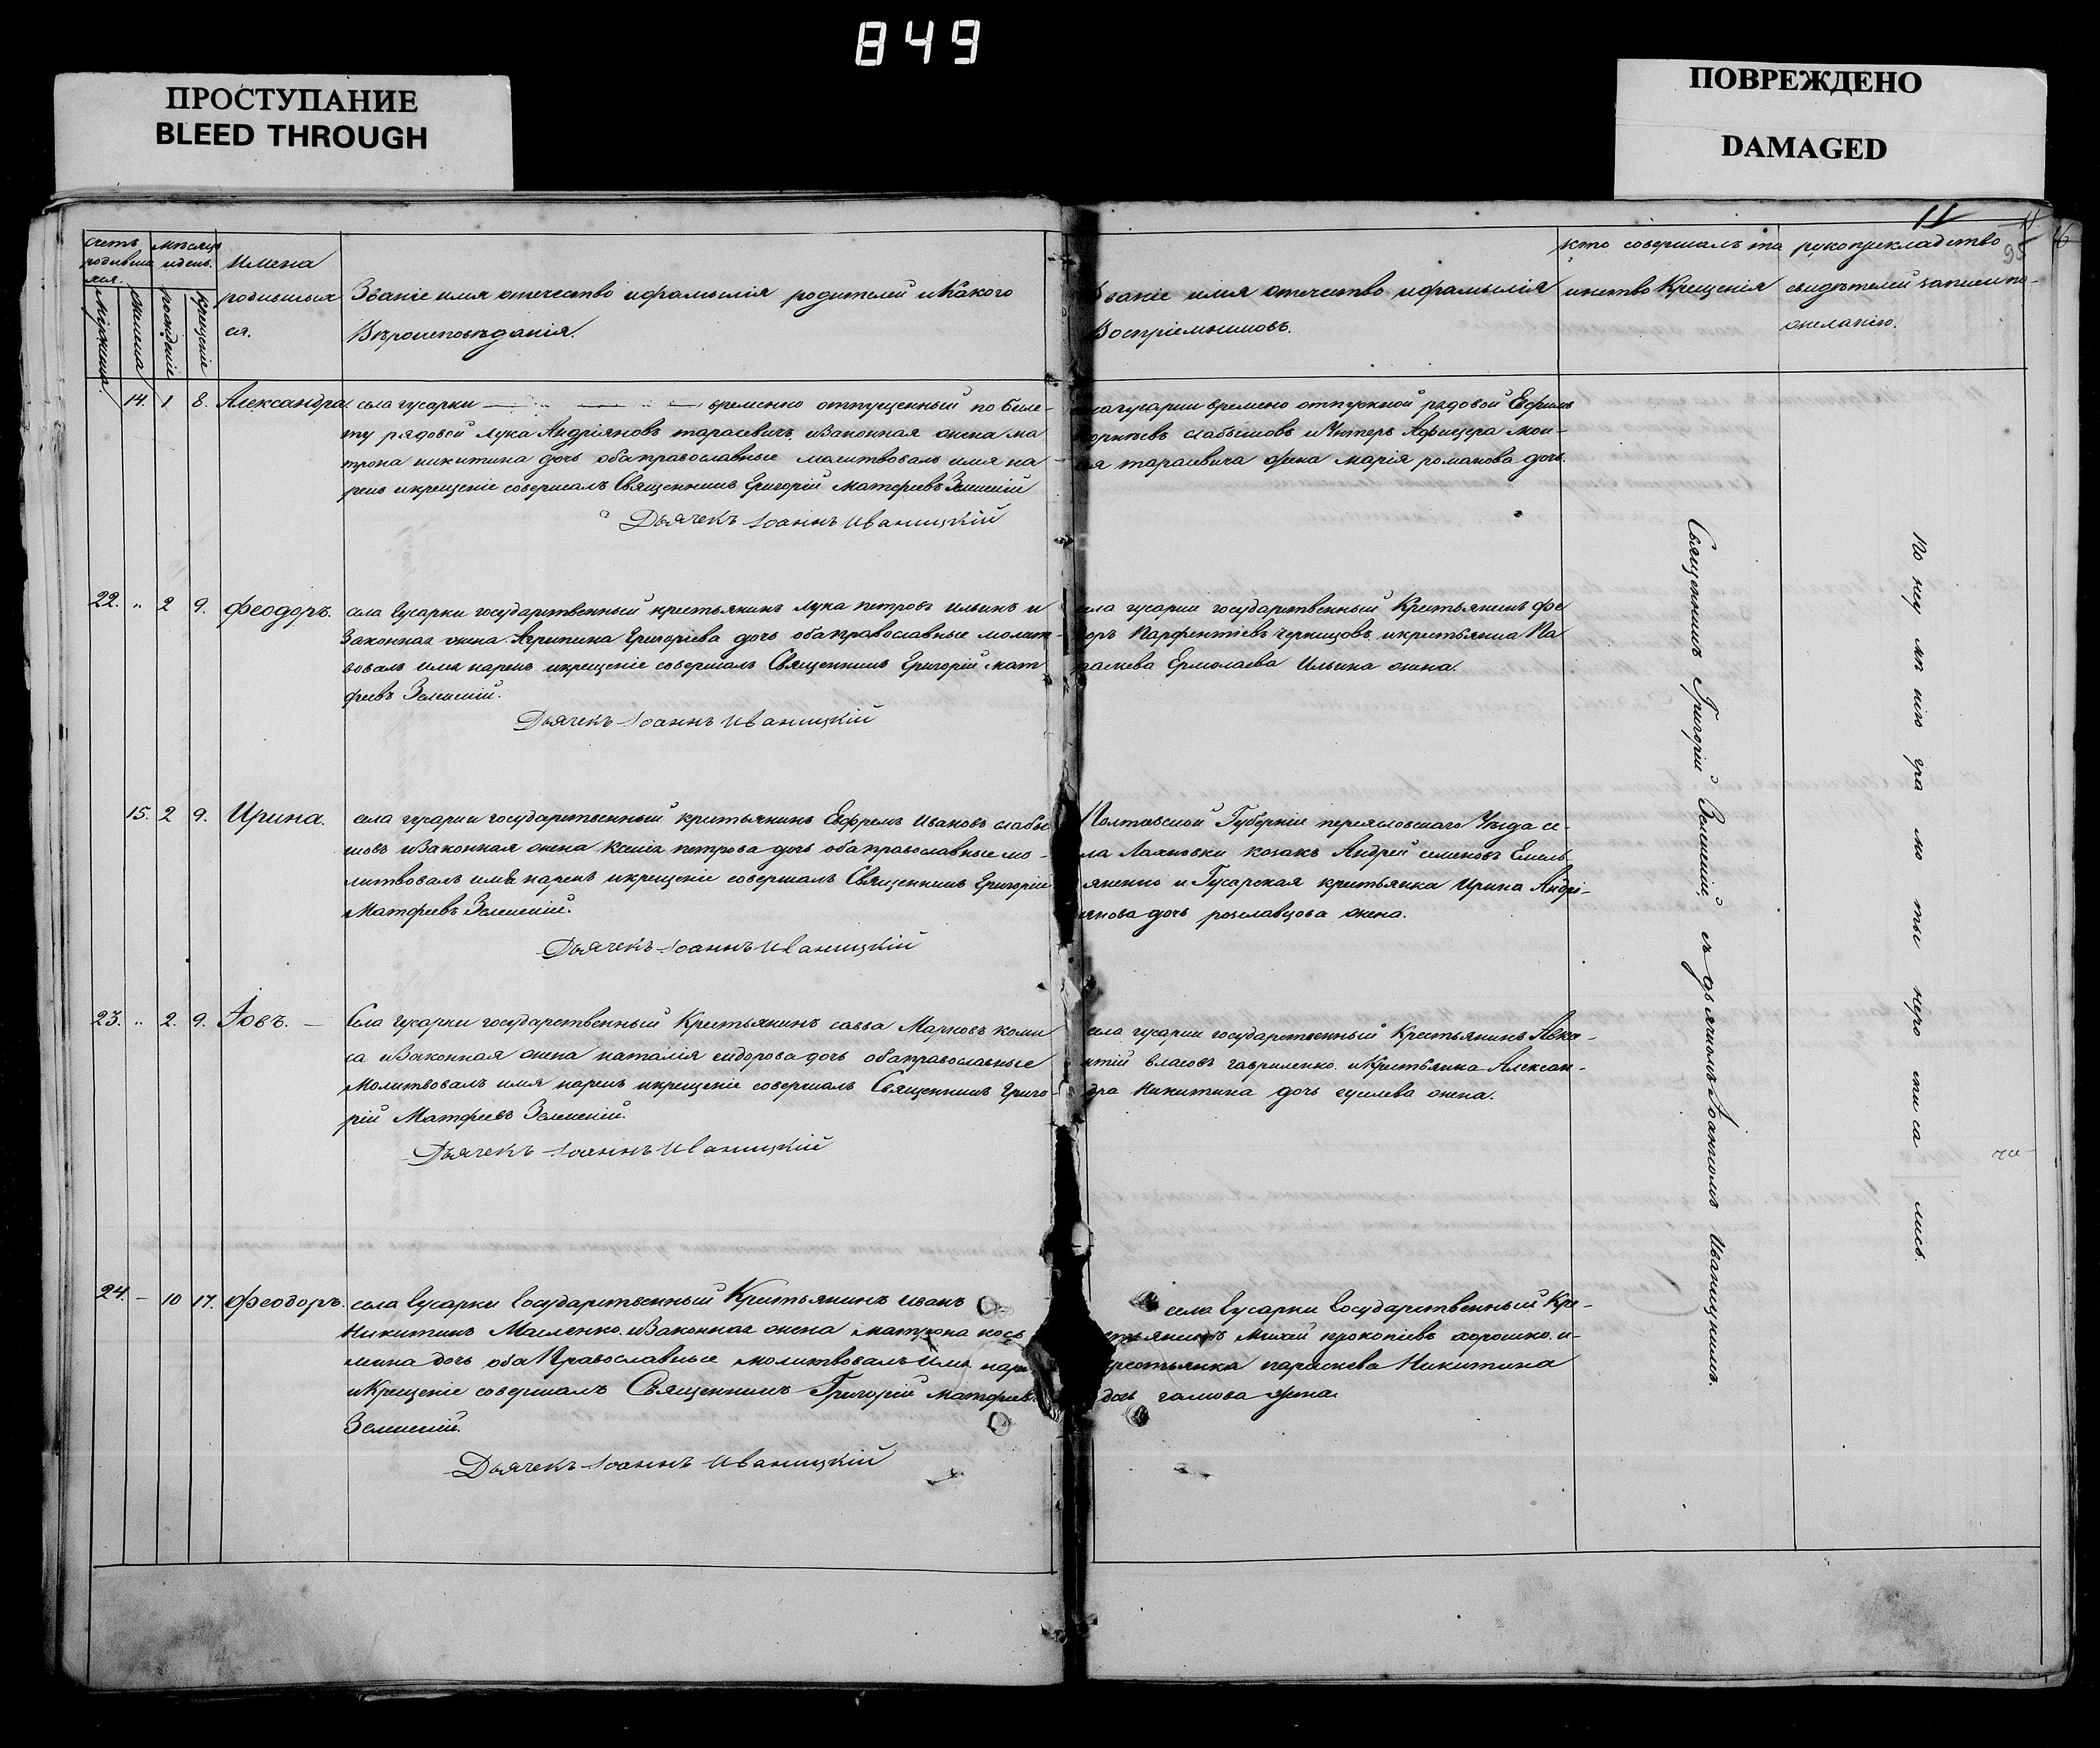 849
ПРОСТУПАНИЕ
BLEED THROUGH
ПОВРЕЖДЕНО
DAMAGED
11
95
счетъ родивши хся.
мужеска
женска
мѣсяцъ идень.
рожденіе
крещеніе
Имена родившихся.
Званіе имя отечество ифамилія родителей икакого
Вѣроисповѣданія.
Званіе имя отечество ифамилія
Воспріемниковъ.
кто совершалъ та
инство Крещенія
рукоприкладство
свидѣтелей записи по
желанію.
14. 1. 8. Александра. села гусарки временно отпущенный по биле-
ту рядовой лука Андріяновъ тарасевичъ, изаконная жена ма
трона никитина дочь обаправославные молитвовалъ имя на
рекъ икрещеніе совершалъ Священникъ Григорій Матфеевъ Зеленскій
Дьячекъ Іоаннъ Иваницкій
гусарки времено отпускной рядовой Ефимъ
слабыковъ иУнтеръ Афицера
тарасевича жена марія романова дочь.
22. " 2 9. Феодоръ. села Гусарки государственный крестьянинъ лука петровъ ильинъ и
Законная жена Агрипина Григоріева дочь обаправославные молит
вовалъ имя нарекъ икрещеніе совершалъ Священникъ Григорій мат
феевъ Зеленскій.
Дьячекъ Іоаннъ Иваницкій
села гусарки государственный Крестьянинъ Фе
доръ Парфентіевъ икрестьянка Па
раскева Ермолаева Ильина жена.
15. 2 9. Ирина. села гусарки государственный крестьянинъ Ефремъ Ивановъ слабы
ковъ изаконная жена Ксенія петрова дочь обаправославные мо-
литвовалъ имя нарекъ икрещеніе совершалъ Священникъ Григорій
Матфеевъ Зеленскій.
Дьячекъ Іоаннъ Иваницкій
Полтавской Губерніи переясловскаго Уезда се-
ла козакъ Андрей семеновъ Емель
яненко и Гусарская крестьянка Ирина Андрі-
янова дочь рославцова жена.
23. " 2. 9. Іовъ. Села Гусарки государственный Крестьянинъ савва Марковъ
изаконная жена наталія сидорова дочь обаправославные
Молитвовалъ имя нарекъ икрещеніе совершалъ Священникъ Григо-
рій Матфеевъ Зеленскій.
Дьячекъ Іоаннъ Иваницкій
села гусарки государственный Крестьянинъ
власовъ гавриленко. иКрестьянка Алексан-
дра Никитина дочь жена.
24. - 10 17. Феодоръ. села Гусарки Государственный Крестьянинъ иванъ
Никитинъ Масленко. изаконная жена матрона кось
мина дочь оба Православные молитвовалъ имя наре
иКрещеніе совершалъ Священникъ Григорій матфеевъ
Зеленскій.
Дьячекъ Іоаннъ Иваницкій
села Гусарки Государственный Кре-
стьянинъ Михей прокопіевъ хорошко. и-
крестьянка параскева Никитина
дочь жена.
Священникъ Григорій Зеленскій, съ дьячкомъ Іоанномъ Иваницкимъ.
По неумѣнію грамоты неростисались.